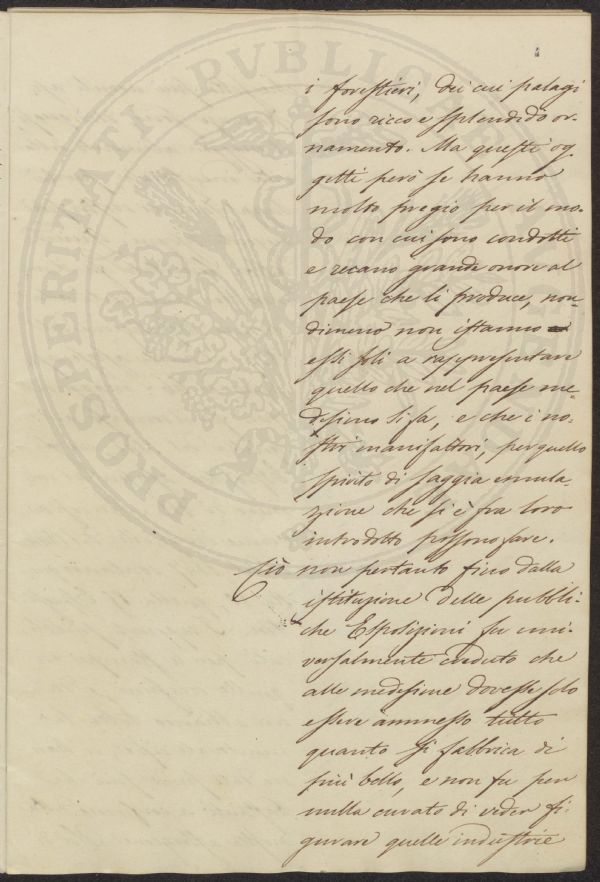 i forestieri, dei cui palagi
sono ricco e splendido or-
namento. Ma questi og
getti però se hanno
molto pregio per il mo-
do con cui sono condotti
e recano grande onore al
paese che li produce, non-
dimeno non istanno
essi soli a rappresentare
quello che nel paese me-
desimo si fa, e che i no-
stri manifattori, per quello
spirito di saggia emula-
zione che si è fra loro
introdotto possono fare.
Ciò non pertanto fino dalla
istituzione delle pubbli-
che Esposizioni fu uni-
versalmente creduto che
alle medesime dovesse solo
essere ammesso tutto
quanto si fabbrica di
più bello, e non fu per
nulla curato di veder fi-
gurare quelle industrie
PROSPERITATI PUBLICAE